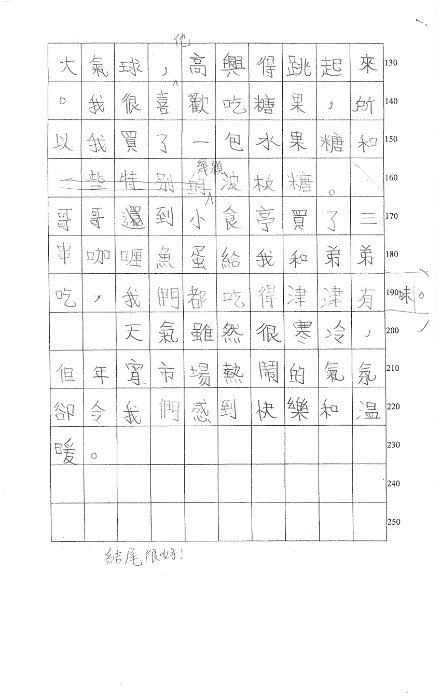 他
大氣球，高興得跳起來 130
。我很喜歡吃糖果，所 140
以我買了一包水果糖和 150
幾顆
一些特別的波板糖。 160
哥哥還到小食亭買了三 170
串咖喱魚蛋給我和弟弟 180
吃，我們都吃得津津有 190 味。
天氣雖然很寒冷， 200
但年宵市場熱鬧的氣氛 210
卻令我們感到快樂和溫 220
暖。 230
240
250
結尾很好！